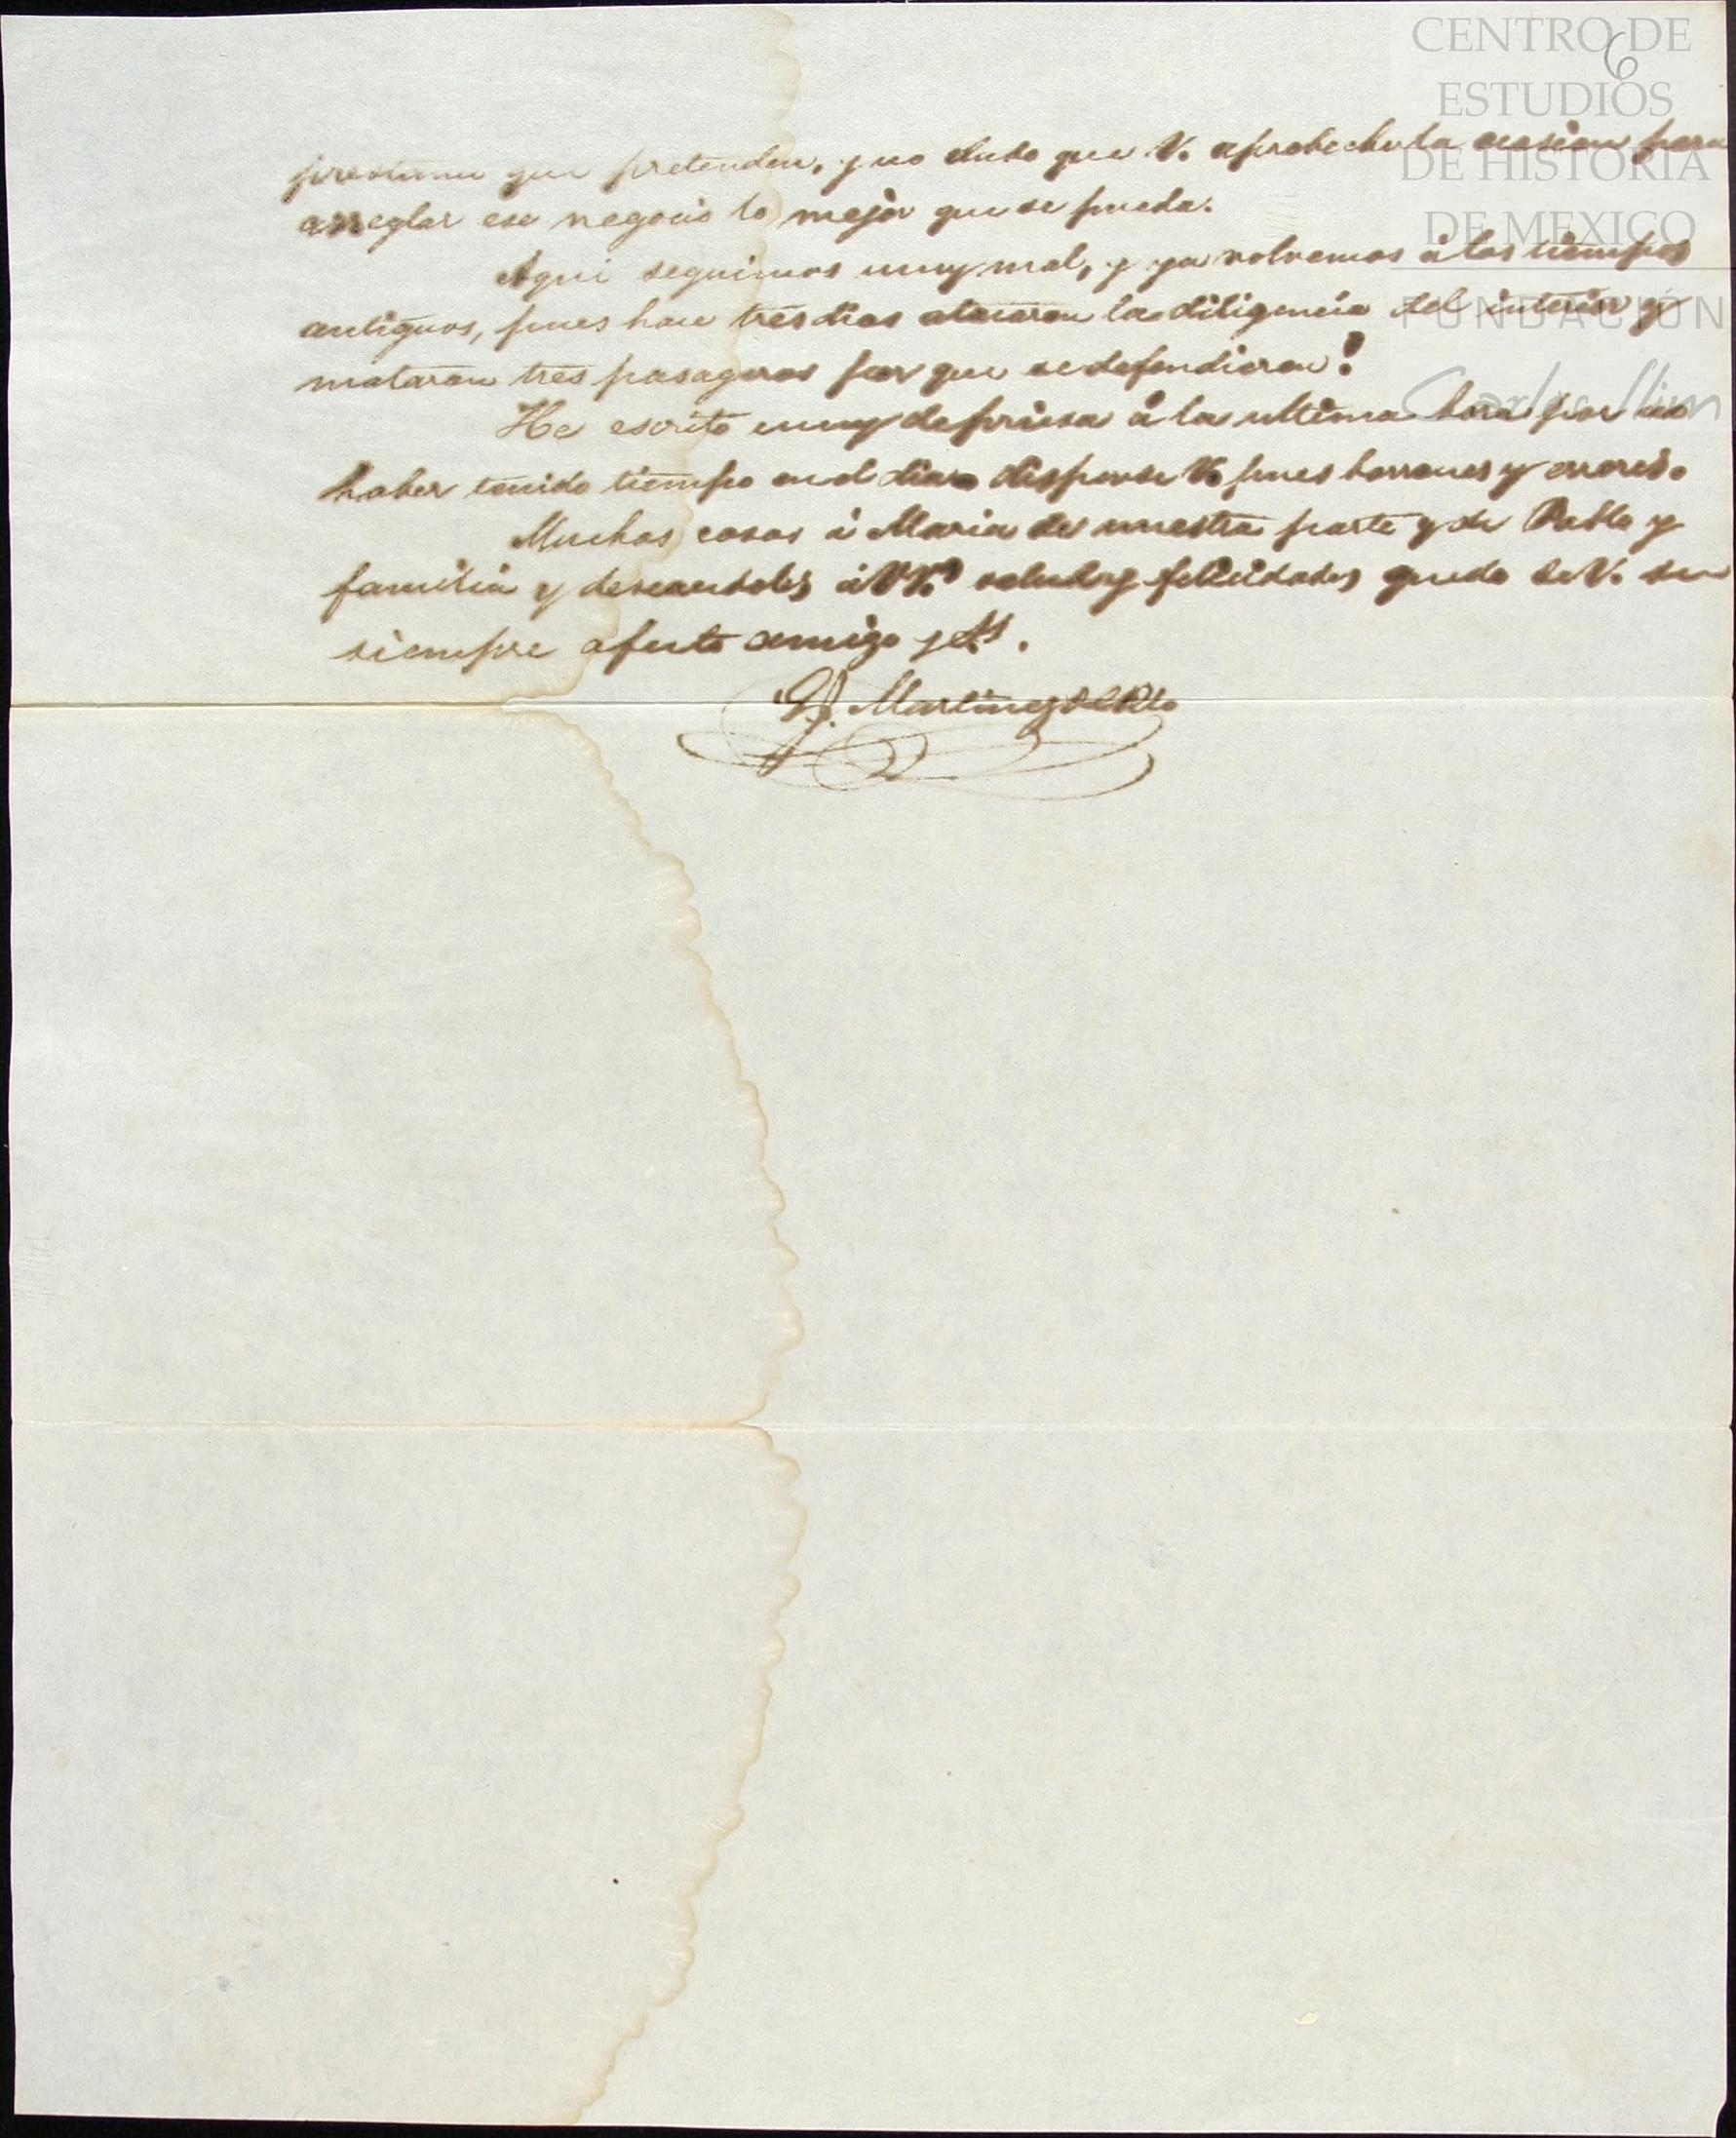 CENTRO DE
6
ESTUDIOS
DE HISTORIA
DE MEXICO
FUNDACIÓN
Carlos Slim
que pretenden, y no dudo que V. aprobechará la ocasion para
arreglar ese negocio lo mejor que se pueda.
Aqui seguimos muy mal, y ya volvemos á los tiempos
antiguos, pues hace tres dias atacaron la diligencia del interior y
mataron tres pasageros por que se defendieron!
He escrito muy de priesa á la ultima hora por no
haber tenido tiempo en el dia dispense V. pues borrones y errores.
Muchas cosas á Maria de nuestra parte y de Pablo y
familia y deseandoles á VV. salud y felicidades quedo de V. su
siempre afecto amigo y
Martinez del Rio